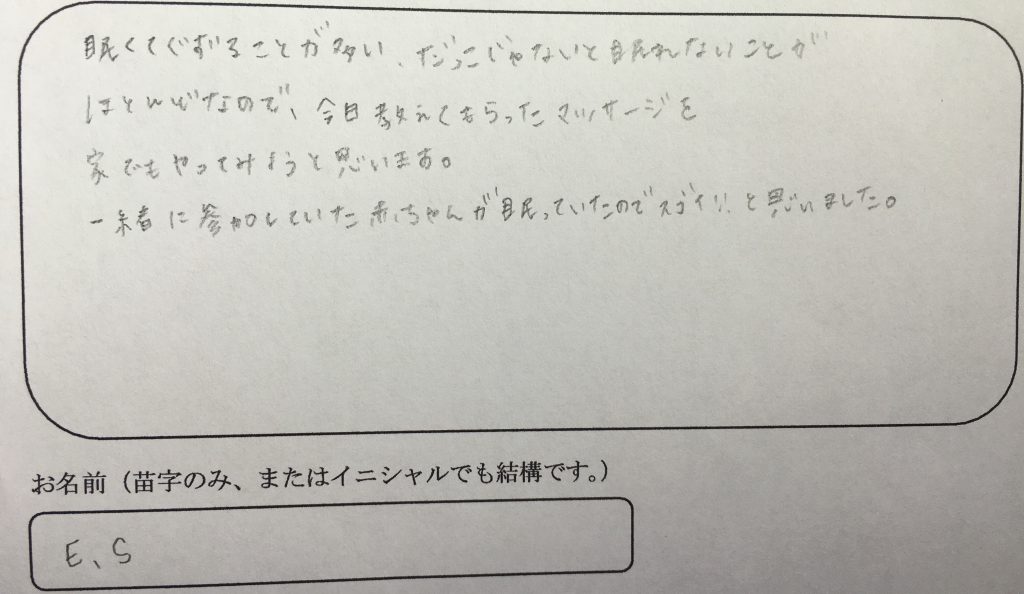 眠くてぐずることが多い、だっこじゃないと眠れないことが
ほとんどなので、今日教えてもらったマッサージを
家でもやってみようと思います。
一緒に参加していた赤ちゃんが眠っていたのでスゴイ!!と思いました。
お名前（苗字のみ、またはイニシャルでも結構です。）
E、S